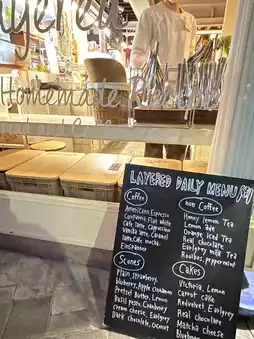 Layered
Homemade
LAYERED DAILY MENU
Coffee
Americano, Espresso
Conpanna, Flat white
Cafe latte, Cappuccino
Vanilla latte, Caramel
latte, Cafe mocha
Einspanner
Scones
Plain, Strawberry
blueberry, Apple cinnamon
Pretzel Butter, Lemon
Basil pesto, Cranberry
Cream cheese, Earlgrey
Dark chocolate, Coconut
non Coffee
Honey lemon Tea
Lemon ade
Orange iced Tea
Real chocolate
Earlgrey milk Tea
Rooibos, peppermint
Cakes
Victoria, Lemon
Carrot cake
Redvelvet, Earlgrey
Real chocolate
Matcha cheese